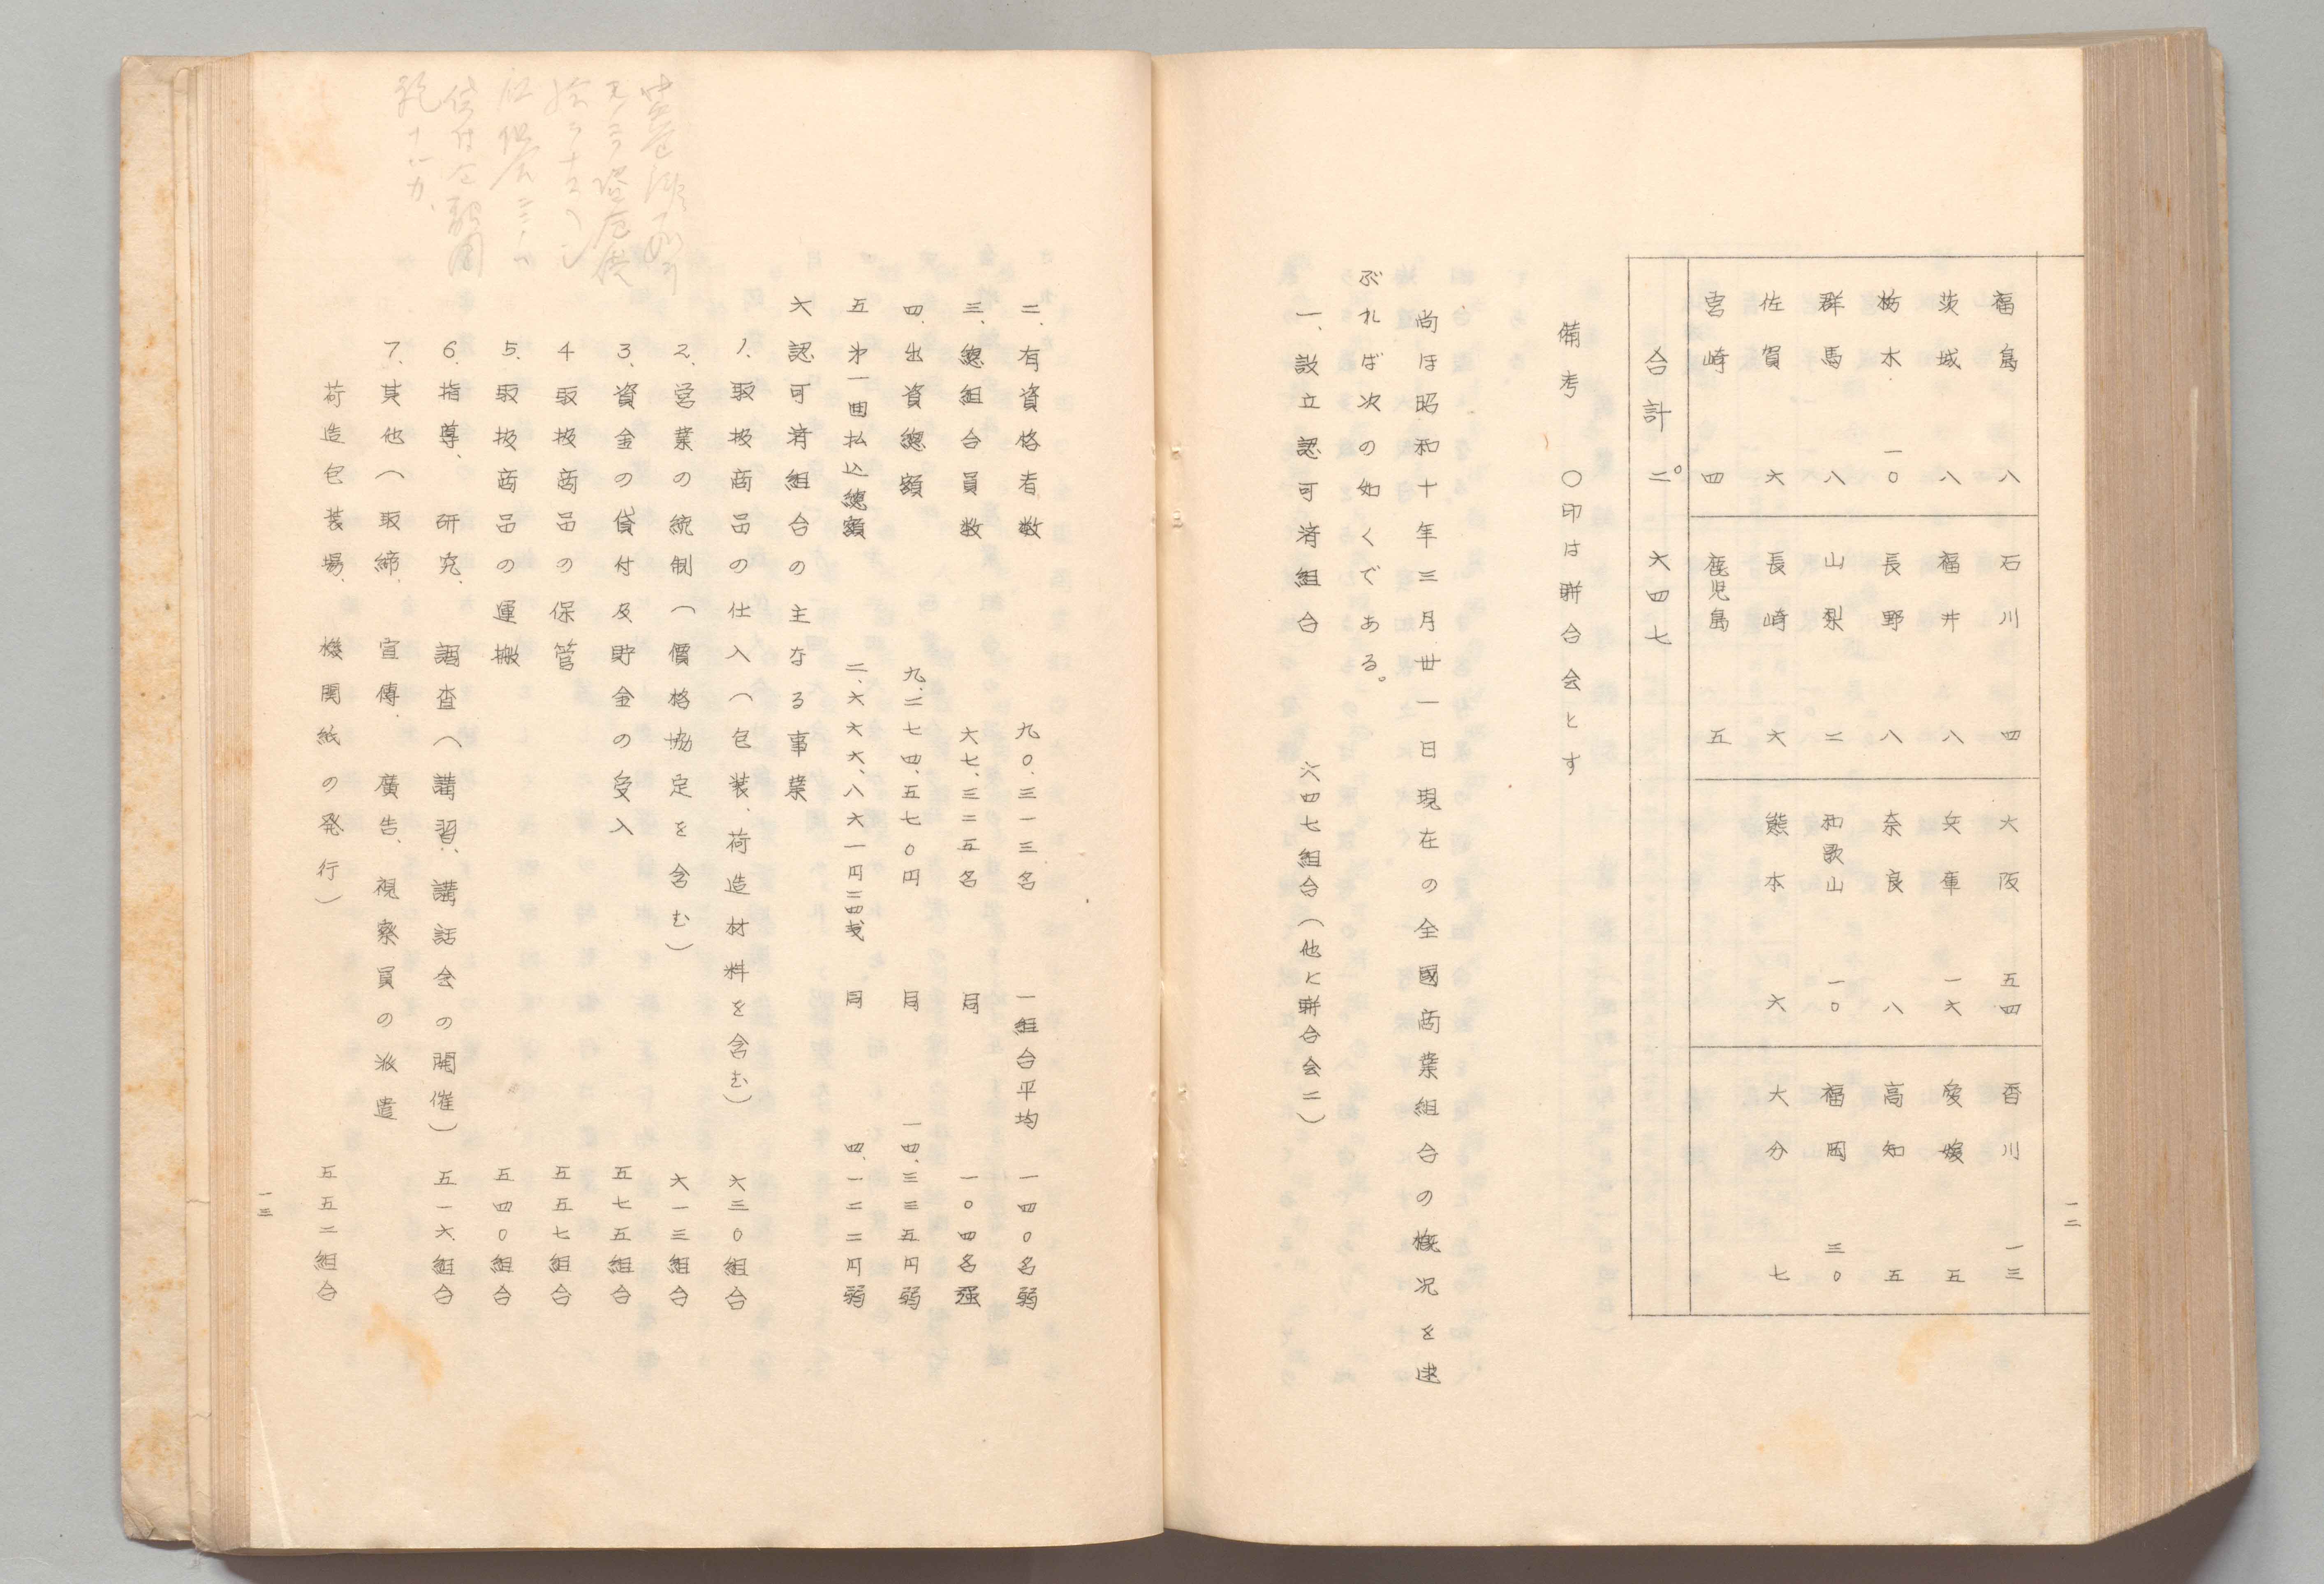 福島 八 石川 四 大阪 五四 香川 一三
茨城 八 福井 八 兵庫 一六 愛媛 五
栃木 一〇 長野 八 奈良 八 高知 五
群馬 八 山梨 二 和歌山 一〇 福岡 三〇
佐賀 六 長崎 六 熊本 六 大分 七
宮崎 四 鹿児島 五
合計 二〇 六四七
備考 〇印は聨合会とす
尚ほ昭和十年三月卅一日現在の全國商業組合の概況を逑
ぶれば次の如くである。
一、設立認可済組合 六四七組合(他に聨合会二)
一二
二、有資格者数 九〇、三一三名 一組合平均 一四〇名弱
三、總組合員数 六七、三二五名 同 一〇四名强
四、出資總額 九、二七四、五七〇円 同 一四、三三五円弱
五 第一囬払込總額 二、六六六、八六一円三四戋 同 四、一二二円弱
六 認可済組合の主なる事業
1、取扱商品の仕入(包装、荷造材料を含む) 六三〇組合
2、営業の統制(價格協定を含む) 六一三組合
3、資金の貸付及貯金の受入 五七五組合
4 取扱商品の保管 五五七組合
5、取扱商品の運搬 五四〇組合
6、指導、研究、調査(講習、講話会の開催) 五一六組合
7、其他(取締、宣傳、廣告、視察員の派遣
荷造包装場、機関紙の発行) 五五二組合
一三